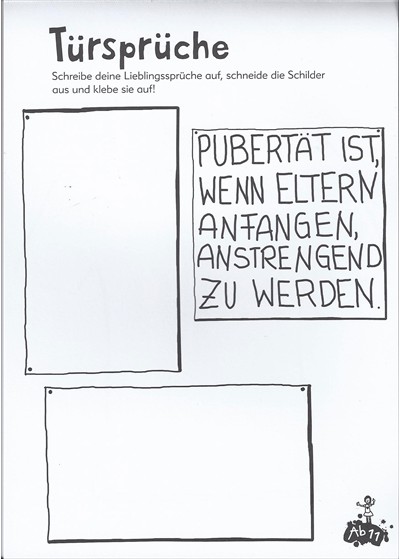 Türsprüche
Schreibe deine Lieblingssprüche auf, schneide die Schilder
aus und klebe sie auf!
PUBERTÄT IST,
WENN ELTERN
ANFANGEN,
ANSTRENGEND
ZU WERDEN.
Ab 11